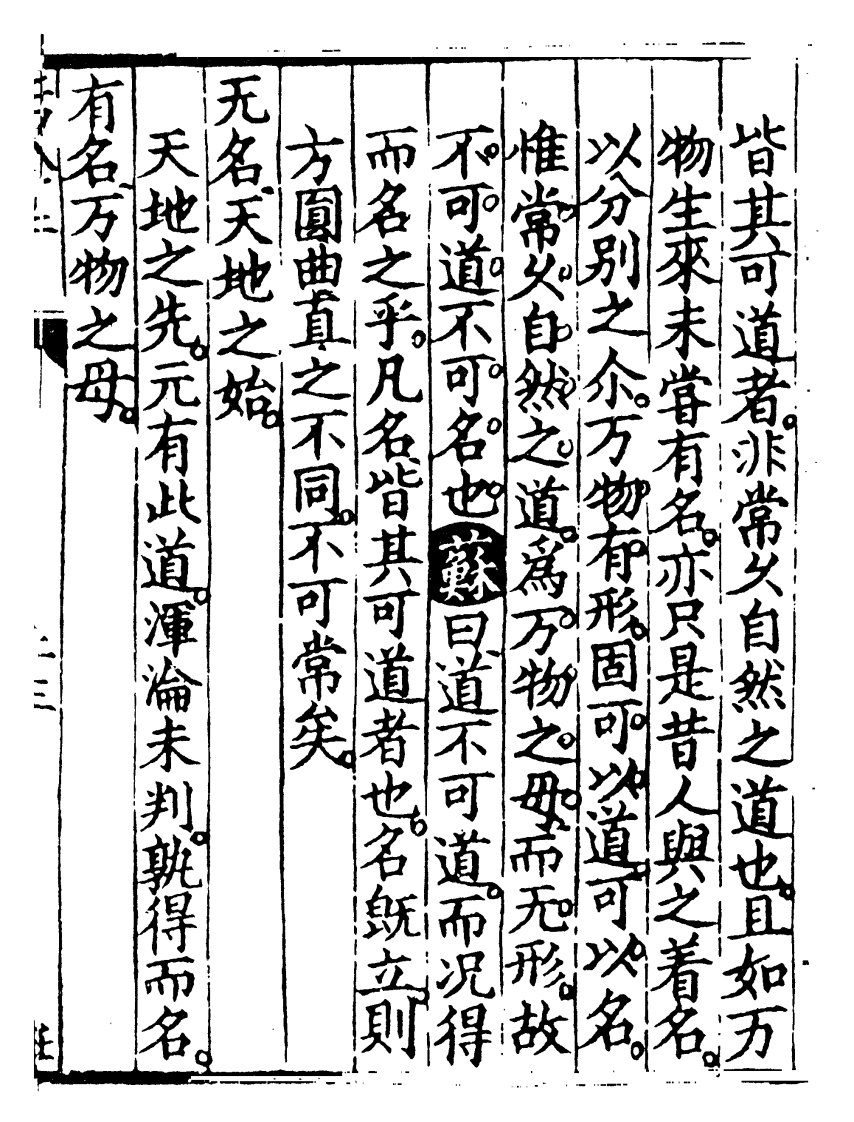 皆其可道者。非常久自然之道也。且如万
物生來未嘗有名。亦只是昔人與之着名。
以分别之尒。万物有形。固可以道。可以名。
惟常久自然之道。爲万物之母而无形。故
不可道不可名也蘇曰道不可道。而况得
而名之乎。凡名皆其可道者也。名旣立。則
方圎曲直之不同。不可常矣。
无名、天地之始。
天地之先。元有此道。渾淪未判。孰得而名。
有名、万物之母。